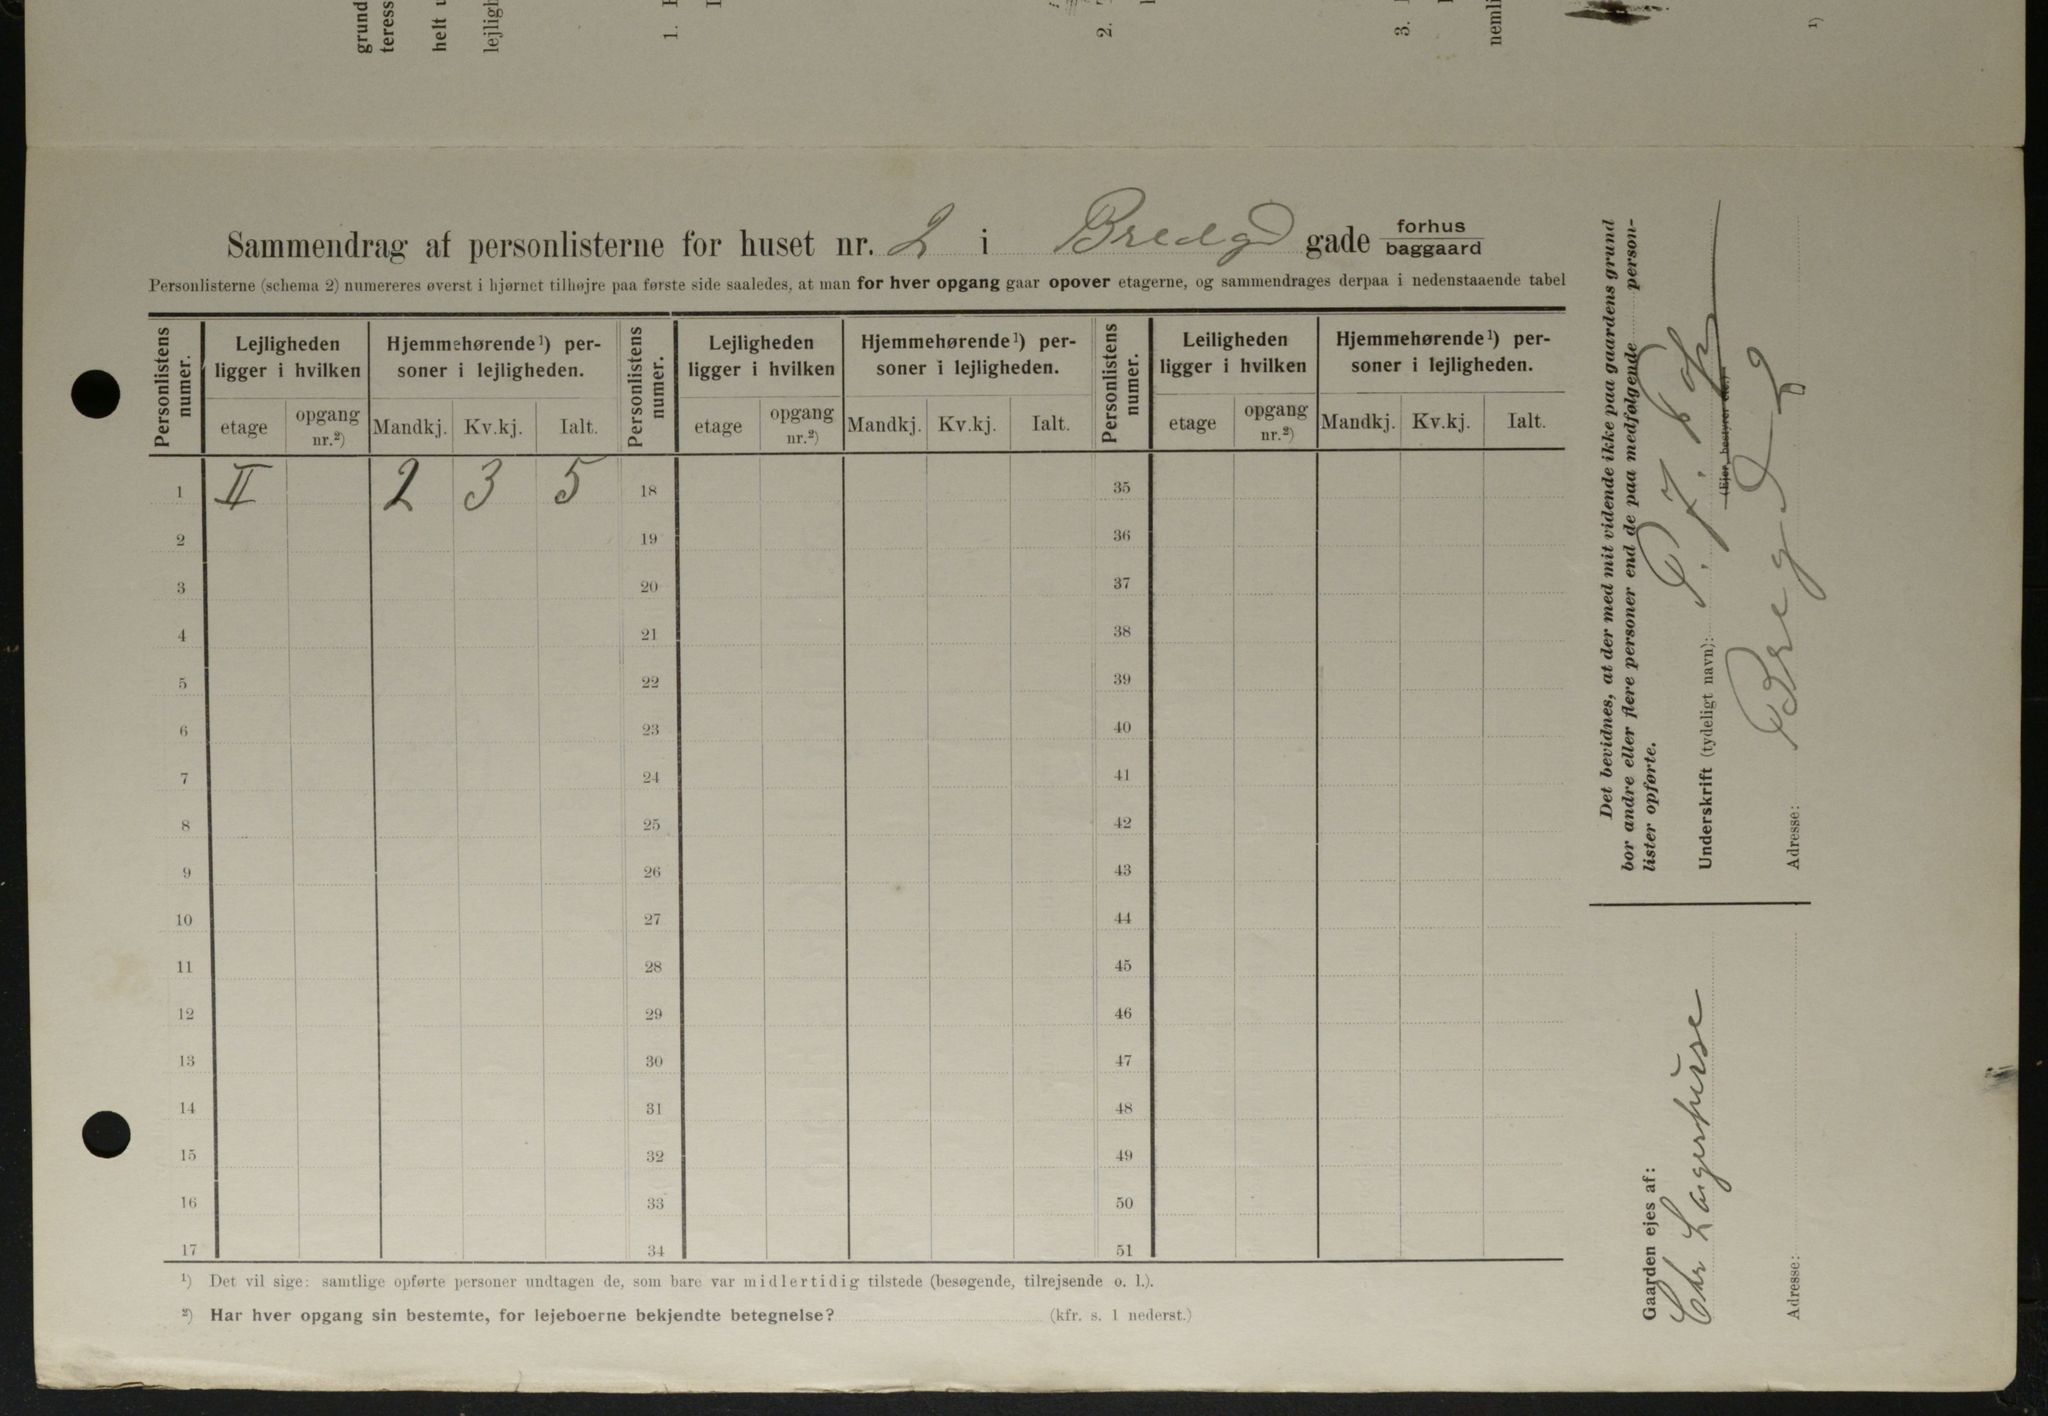 grund
teress
helt u
lejligh
1.
2.
3.
nemli
1)
Sammendrag af personlisterne for huset nr. 2 i Bredgd gade forhus
baggaard
Personlisterne (schema 2) numereres øverst i hjørnet tilhøjre paa første side saaledes, at man for hver opgang gaar opover etagerne, og sammendrages derpaa i nedenstaaende tabel
Personlistens numer. Lejligheden ligger i hvilken Hjemmehørende¹) personer i lejligheden. Personlistens numer. Lejligheden ligger i hvilken Hjemmehørende¹) personer i lejligheden. Personlistens numer. Leiligheden ligger i hvilken Hjemmehørende¹) personer i lejligheden.
etage opgang nr.²) Mandkj. Kv.kj. Ialt. etage opgang nr.²) Mandkj. Kv.kj. Ialt. etage opgang nr.²) Mandkj. Kv.kj. Ialt.
1 II 2 3 5 18 35
2 19 36
3 20 37
4 21 38
5 22 39
6 23 40
7 24 41
8 25 42
9 26 43
10 27 44
11 28 45
12 29 46
13 30 47
14 31 48
15 32 49
16 33 50
17 34 51
¹) Det vil sige: samtlige opførte personer undtagen de, som bare var midlertidig tilstede (besøgende, tilrejsende o. l.).
²) Har hver opgang sin bestemte, for lejeboerne bekjendte betegnelse? (kfr. s. 1 nederst.)
Det bevidnes, at der med mit vidende ikke paa gaardens grund
bor andre eller flere personer end de paa medfølgende person-
lister opførte.
Underskrift (tydeligt navn):
(Ejer, bestyrer etc.)
Adresse: Bregd 2
Gaarden ejes af:
Chr Lagerhuse
Adresse: